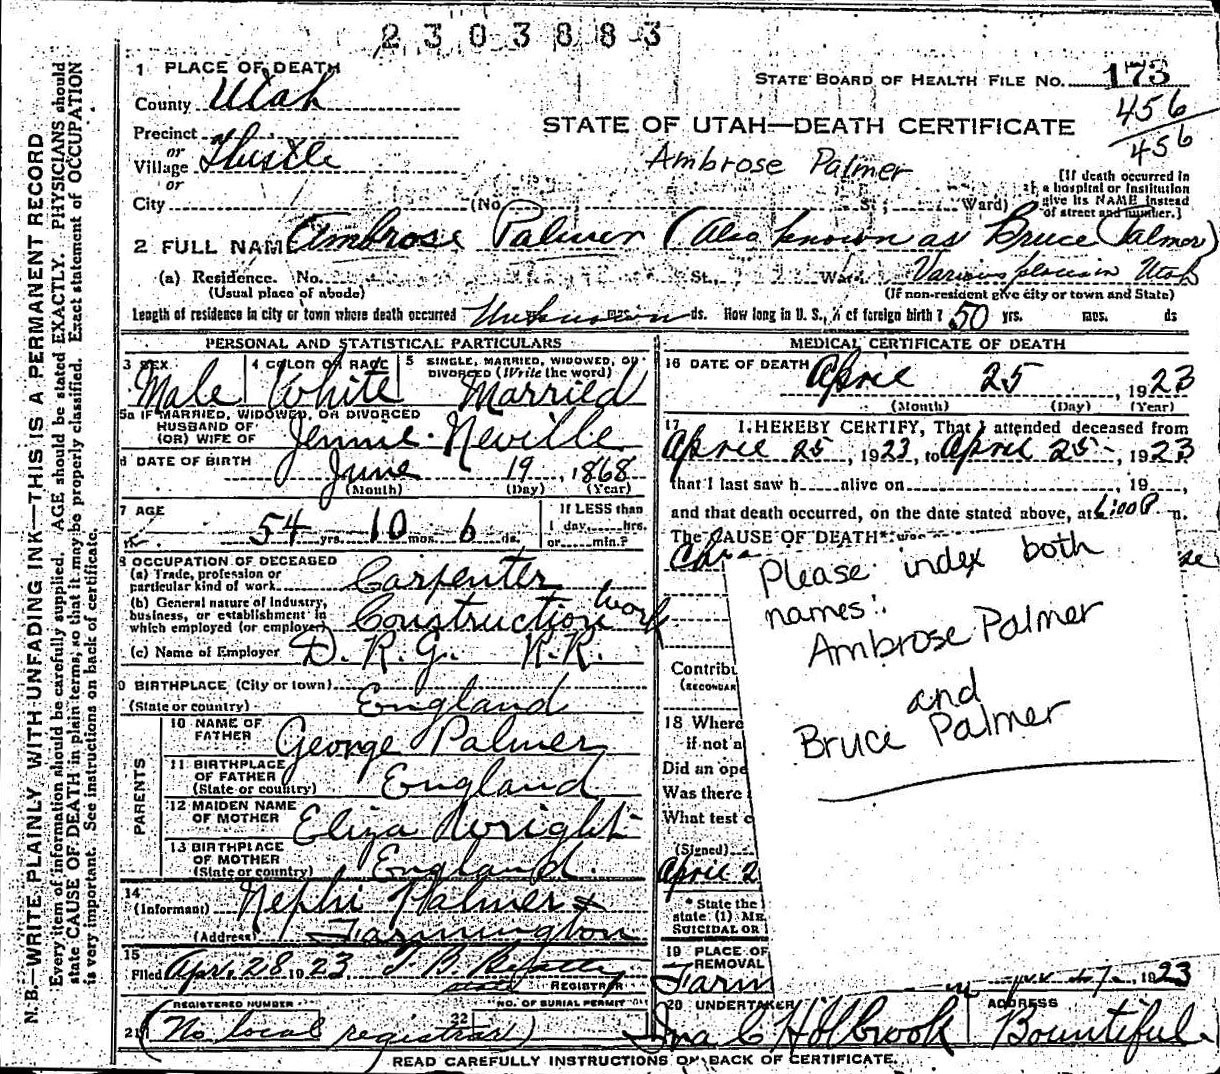 2303883
1 PLACE OF DEATH
STATE BOARD OF HEALTH FILE NO. 173
County Utah
456
456
STATE OF UTAH—DEATH CERTIFICATE
Precinct
or
Village Thistle
or
Ambrose Palmer
[If death occurred in
a hospital or institution
give its NAME instead
of street and number.]
City (No. St.; Ward)
2 FULL NAME Ambrose Palmer (Also known as Bruce Palmer)
(a) Residence. No. St., Ward. Various places in Utah
(Usual place of abode) (If non-resident give city or town and State)
Length of residence in city or town where death occurred Unknown mos. ds. How long in U. S., if of foreign birth? 50 yrs. mos. ds
PERSONAL AND STATISTICAL PARTICULARS
3 SEX Male
4 COLOR OR RACE White
5 SINGLE, MARRIED, WIDOWED, OR
DIVORCED (Write the word)
Married
5a IF MARRIED, WIDOWED, OR DIVORCED
HUSBAND OF
(OR) WIFE OF Jennie Neville
6 DATE OF BIRTH June 19, 1868
(Month) (Day) (Year)
7 AGE 54 yrs. 10 mos. 6 ds.
If LESS than
1 day, hrs.
or min.?
8 OCCUPATION OF DECEASED
(a) Trade, profession or
particular kind of work Carpenter
(b) General nature of Industry,
business, or establishment in
which employed (or employer) Construction Work
(c) Name of Employer D. R. G. R.R.
9 BIRTHPLACE (City or town)
(State or country) England
PARENTS
10 NAME OF
FATHER George Palmer
11 BIRTHPLACE
OF FATHER
(State or country) England
12 MAIDEN NAME
OF MOTHER Eliza Wright
13 BIRTHPLACE
OF MOTHER
(State or country) England.
14
(Informant) Nephi Palmer
(Address) Farmington
15
Filed Apr. 28 1923 T. B.
REGISTRAR
REGISTERED NUMBER
NO. OF BURIAL PERMIT
21 (No local registrar) 22
MEDICAL CERTIFICATE OF DEATH
16 DATE OF DEATH April 25, 1923
(Month) (Day) (Year)
17 I HEREBY CERTIFY, That I attended deceased from
April 25, 1923, to April 25, 1923
that I last saw h alive on 19 ,
and that death occurred, on the date stated above, at 6:00 P. m.
The CAUSE OF DEATH* was
Please index both
names:
Ambrose Palmer
and
Bruce Palmer
Contribu
(SECONDAR
18 Where
if not a
Did an ope
Was there
What test c
(Signed)
April 2
* State the
state (1) ME
SUICIDAL OR
19 PLACE OF
REMOVAL
Farm 1923
20 UNDERTAKER ADDRESS
Ina C Holbrook Bountiful
READ CAREFULLY INSTRUCTIONS ON BACK OF CERTIFICATE.
N. B.—WRITE PLAINLY WITH UNFADING INK—THIS IS A PERMANENT RECORD
Every item of information should be carefully supplied. AGE should be stated EXACTLY. PHYSICIANS should
state CAUSE OF DEATH in plain terms, so that it may be properly classified. Exact statement of OCCUPATION
is very important. See instructions on back of certificate.